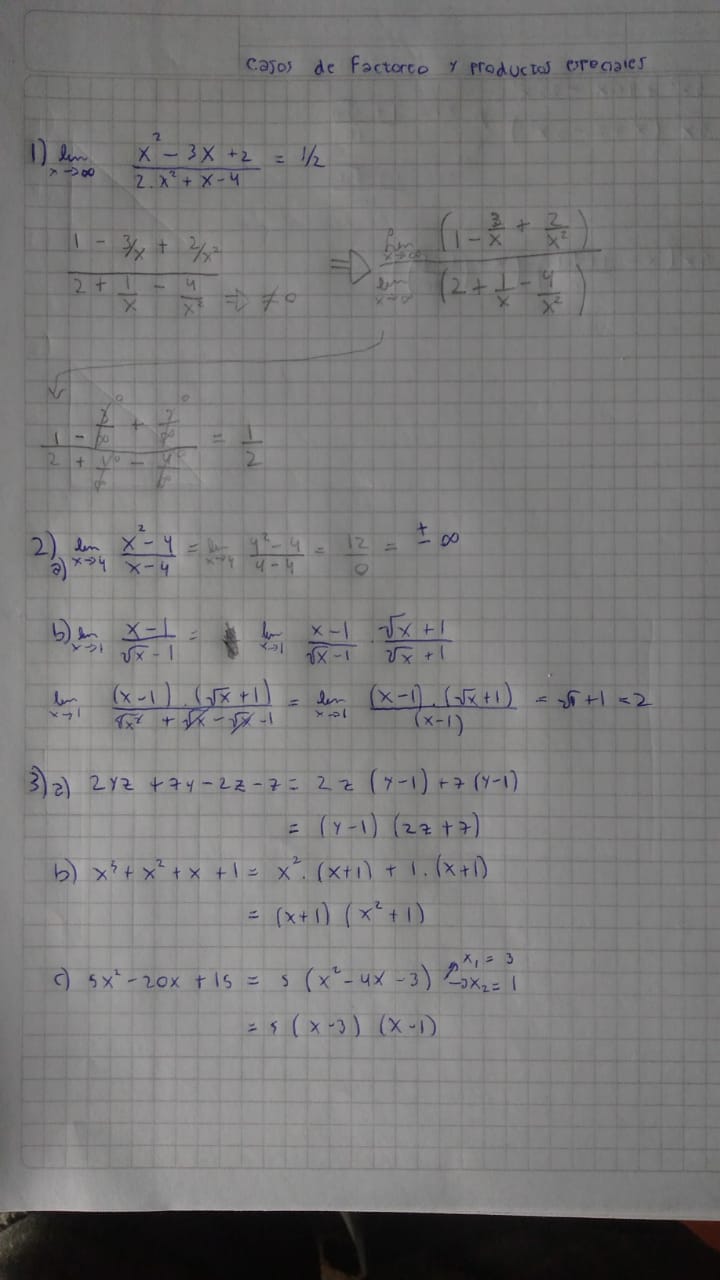 Casos de Factoreo y productos especiales
1) lim x→∞ (x² - 3x + 2)/(2.x² + x - 4) = 1/2
(1 - 3/x + 2/x²)/(2 + 1/x - 4/x²) ⇒ ≠ 0 ⇒ lim x→∞ (1 - 3/x + 2/x²) / lim x→∞ (2 + 1/x - 4/x²)
(1 - 3/∞ + 2/∞)/(2 + 1/∞ - 4/∞) = 1/2
2) a) lim x→4 (x² - 4)/(x - 4) = lim x→4 (4² - 4)/(4 - 4) = 12/0 = ± ∞
b) lim x→1 (x - 1)/(√x - 1) = lim x→1 (x - 1)/(√x - 1) . (√x + 1)/(√x + 1)
lim x→1 (x - 1) . (√x + 1)/(√x² + √x - √x - 1) = lim x→1 (x - 1) . (√x + 1)/(x - 1) = √1 + 1 = 2
3) a) 2yz + 7y - 2z - 7 = 2z (y - 1) + 7 (y - 1)
= (y - 1) (2z + 7)
b) x³ + x² + x + 1 = x² . (x + 1) + 1 . (x + 1)
= (x + 1) (x² + 1)
c) 5x² - 20x + 15 = 5 (x² - 4x - 3) → x₁ = 3 → x₂ = 1
= 5 (x - 3) (x - 1)